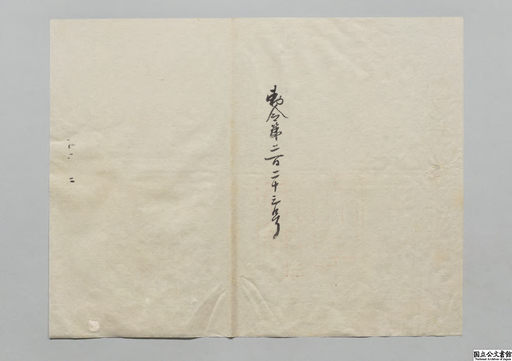 勅令第二百二十三号
国立公文書館
National Archives of Japan